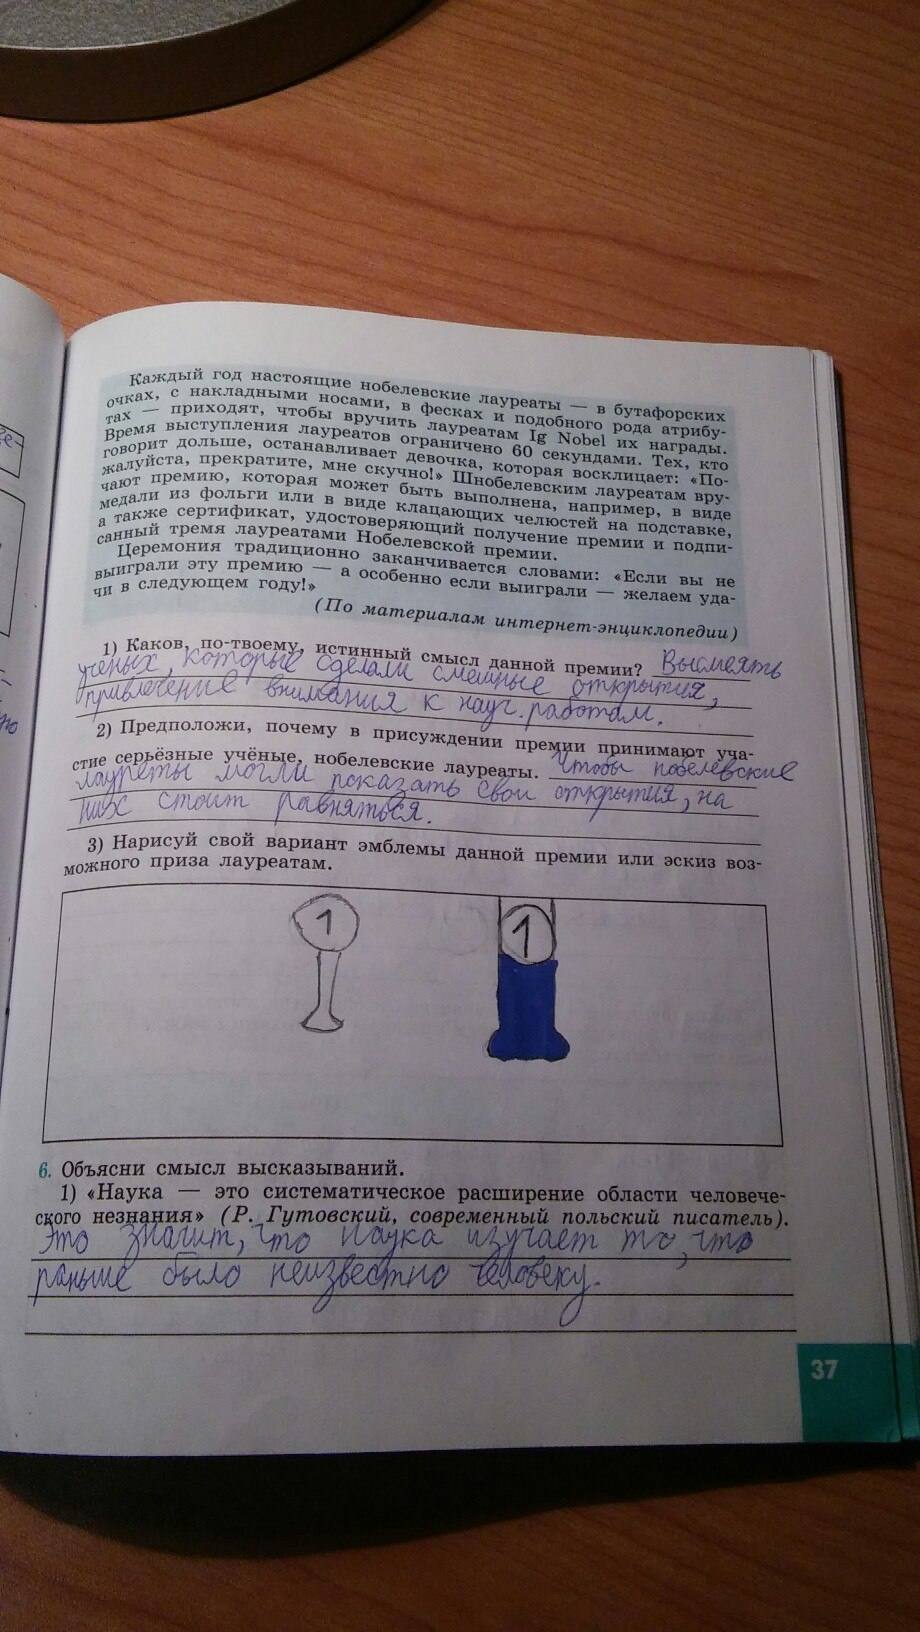 Каждый год настоящие нобелевские лауреаты — в бутафорских
очках, с накладными носами, в фесках и подобного рода атрибу-
тах — приходят, чтобы вручить лауреатам Ig Nobel их награды.
Время выступления лауреатов ограничено 60 секундами. Тех, кто
говорит дольше, останавливает девочка, которая восклицает: «По-
жалуйста, прекратите, мне скучно!» Шнобелевским лауреатам вру-
чают премию, которая может быть выполнена, например, в виде
медали из фольги или в виде клацающих челюстей на подставке,
а также сертификат, удостоверяющий получение премии и подпи-
санный тремя лауреатами Нобелевской премии.
Церемония традиционно заканчивается словами: «Если вы не
выиграли эту премию — а особенно если выиграли — желаем уда-
чи в следующем году!»
(По материалам интернет-энциклопедии)
1) Каков, по-твоему, истинный смысл данной премии? Высмеять
ученых, которые сделали смешные открытия,
привлечение внимания к науч. работам.
2) Предположи, почему в присуждении премии принимают уча-
стие серьёзные учёные, нобелевские лауреаты. Чтобы нобелевские
лауреты могли показать свои открытия, на
них стоит равняться.
3) Нарисуй свой вариант эмблемы данной премии или эскиз воз-
можного приза лауреатам.
1 1
6. Объясни смысл высказываний.
1) «Наука — это систематическое расширение области человече-
ского незнания» (Р. Гутовский, современный польский писатель).
Это значит, что наука изучает то, что
раньше было неизвестно человеку.
37